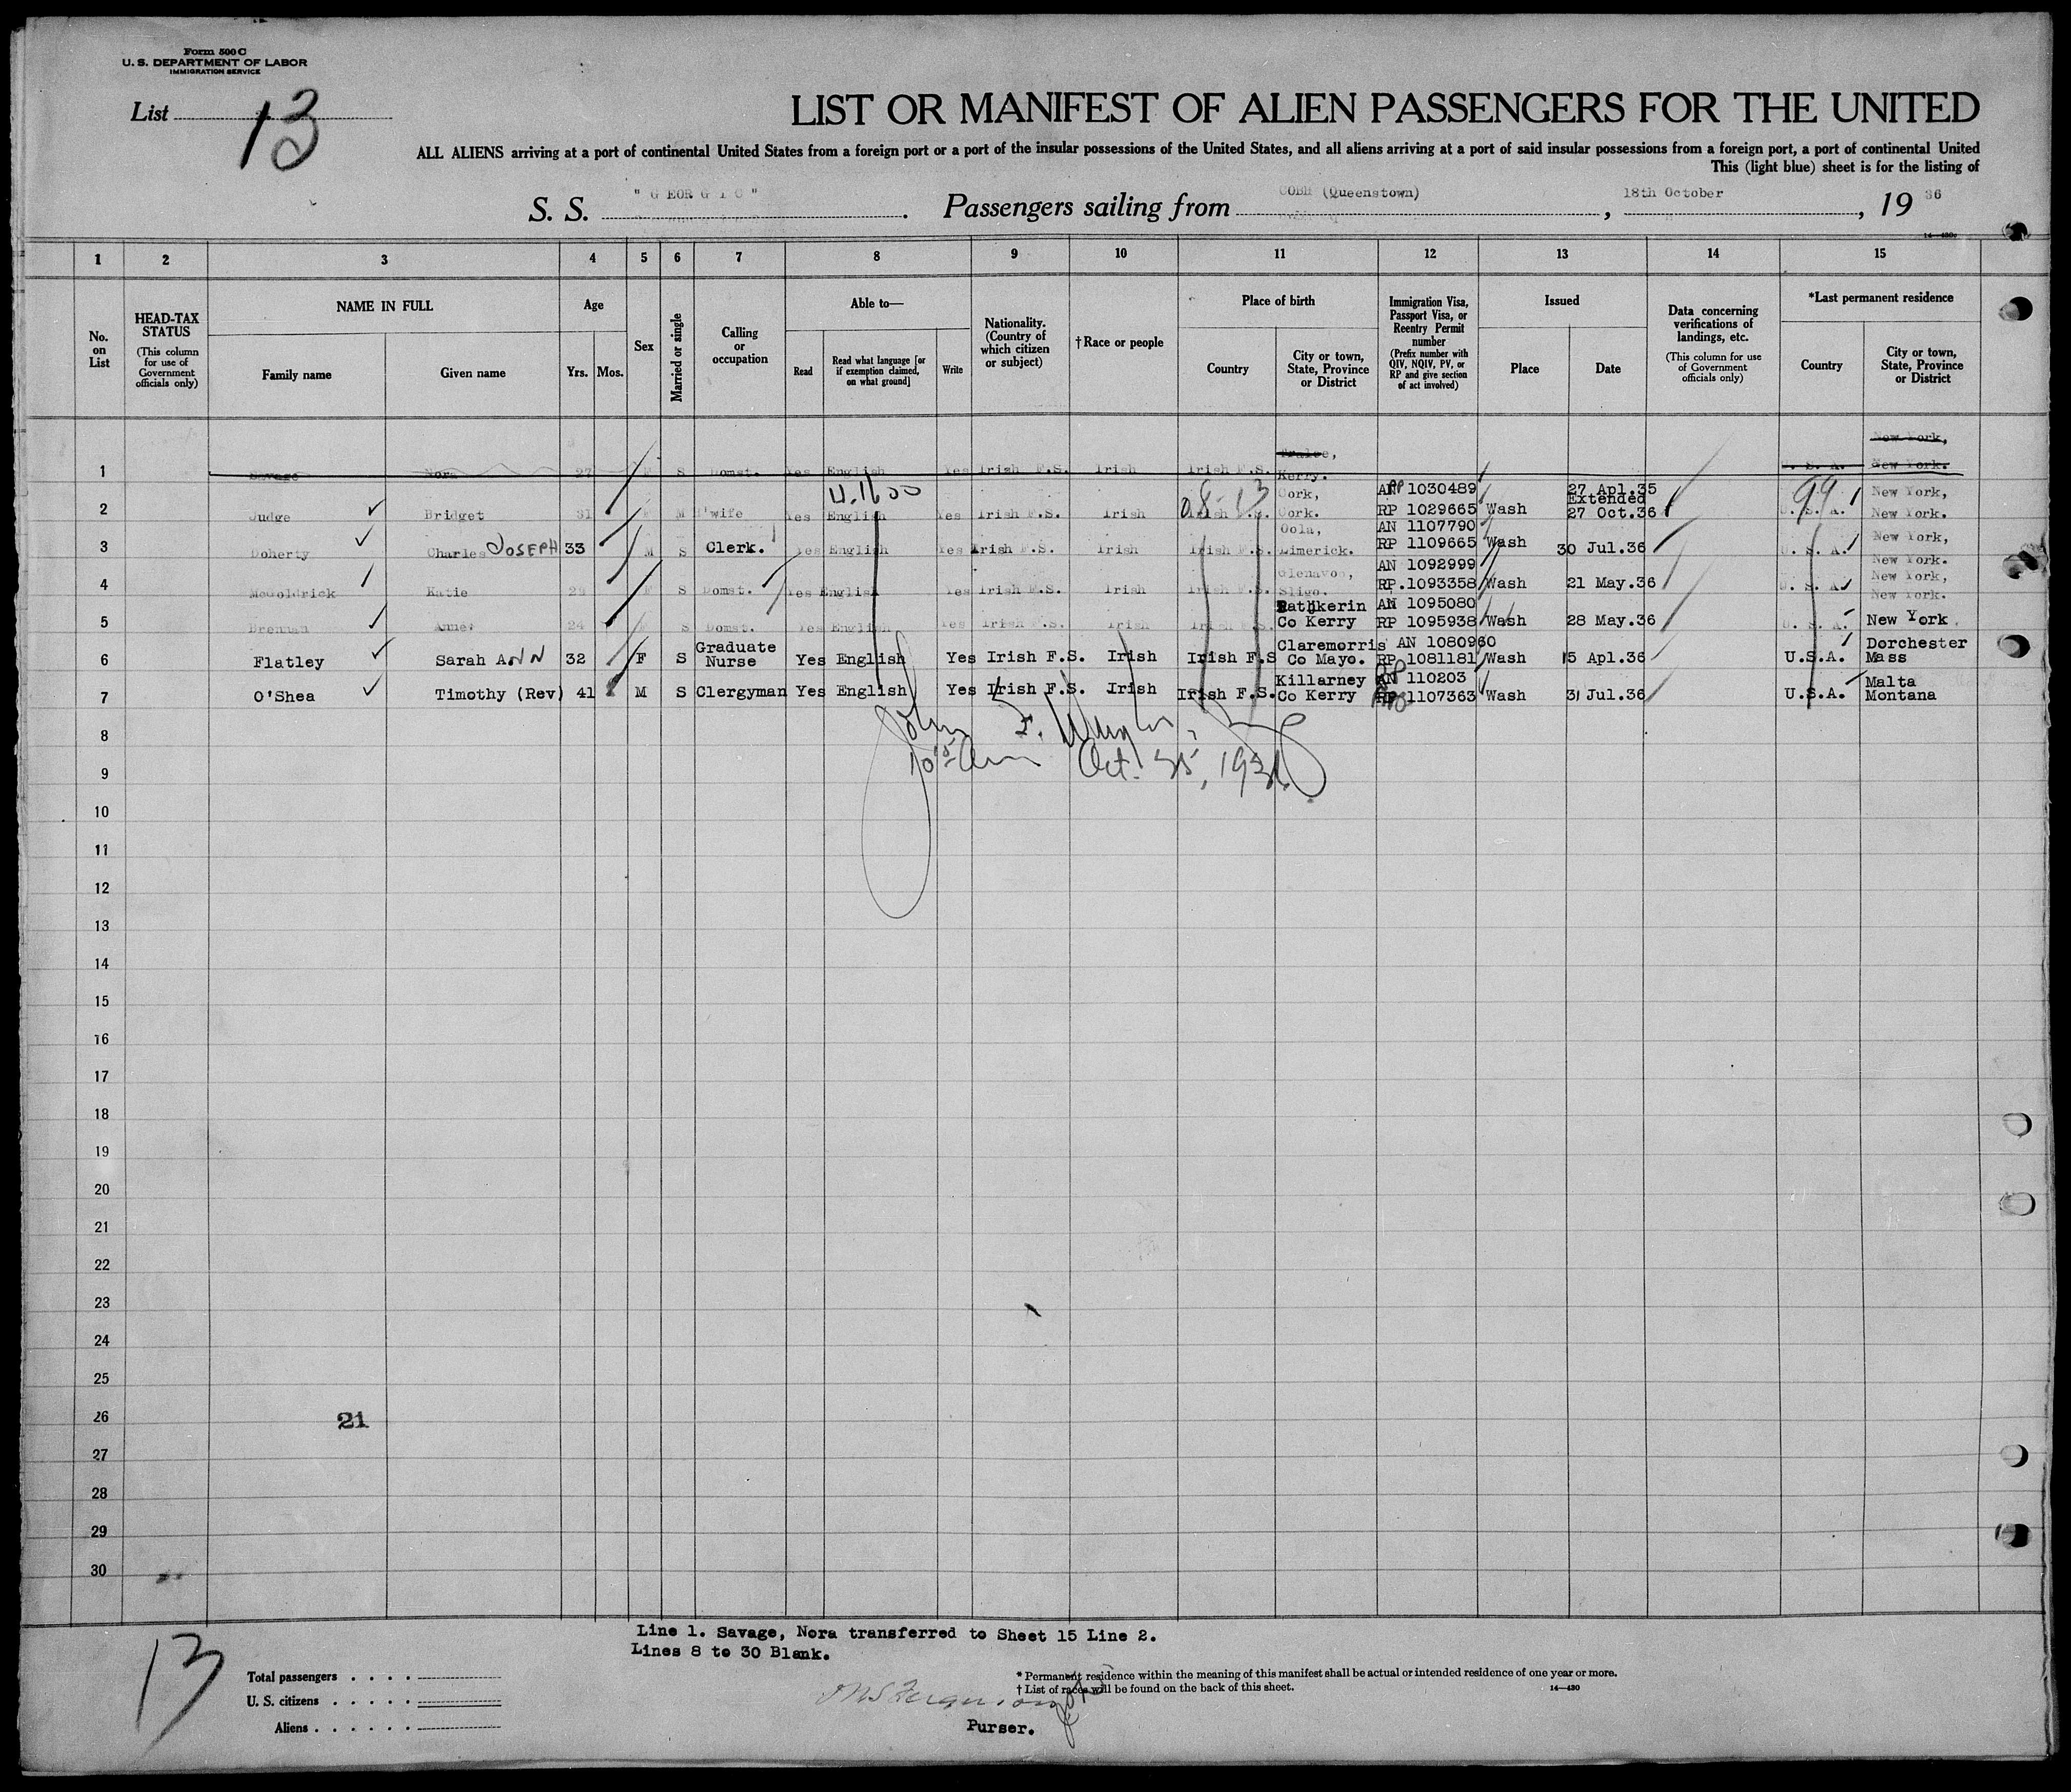 Form 500 C
U. S. DEPARTMENT OF LABOR
IMMIGRATION SERVICE
List 13
LIST OR MANIFEST OF ALIEN PASSENGERS FOR THE UNITED
ALL ALIENS arriving at a port of continental United States from a foreign port or a port of the insular possessions of the United States, and all aliens arriving at a port of said insular possessions from a foreign port, a port of continental United
This (light blue) sheet is for the listing of
S. S. "GEORGIC". Passengers sailing from COBH (Queenstown), 18th October, 19 36
14—430
1 2 3 4 5 6 7 8 9 10 11 12 13 14 15
No. on List
HEAD-TAX STATUS (This column for use of Government officials only)
NAME IN FULL
Family name Given name
Age
Yrs. Mos.
Sex
Married or single
Calling or occupation
Able to—
Read Read what language [or if exemption claimed, on what ground] Write
Nationality. (Country of which citizen or subject)
†Race or people
Place of birth
Country City or town, State, Province or District
Immigration Visa, Passport Visa, or Reentry Permit number (Prefix number with QIV, NQIV, PV, or RP and give section of act involved)
Issued
Place Date
Data concerning verifications of landings, etc. (This column for use of Government officials only)
*Last permanent residence
Country City or town, State, Province or District
1 Savage Nora 27 F S Domst. Yes English Yes Irish F.S. Irish Irish F.S. Tralee, Kerry. U. S. A. New York, New York.
2 Judge Bridget 31 F M H'wife Yes English Yes Irish F.S. Irish Irish F.S. Cork, Cork. AN 1030489 RP 1029665 Wash 27 Apl.35 Extended 27 Oct.36 U. S. A. New York, New York.
3 Doherty Charles JOSEPH 33 M S Clerk. Yes English Yes Irish F.S. Irish Irish F.S. Oola, Limerick. AN 1107790 RP 1109665 Wash 30 Jul.36 U. S. A. New York, New York.
4 McGoldrick Katie S Domst. Yes English Yes Irish F.S. Irish Irish F.S. Sligo. AN 1092999 RP.1093358 Wash 21 May.36 U. S. A. New York, New York.
5 Brennan Anne 24 F S Domst. Yes English Yes Irish F.S. Irish Irish F.S. Co Kerry AN 1095080 RP 1095938 Wash 28 May.36 U. S. A. New York.
6 Flatley Sarah ANN 32 F S Graduate Nurse Yes English Yes Irish F.S. Irish Irish F.S Claremorris Co Mayo. AN 1080960 RP 1081181 Wash 15 Apl.36 U.S.A. Dorchester Mass
7 O'Shea Timothy (Rev) 41 M S Clergyman Yes English Yes Irish F.S. Irish Irish F.S. Killarney Co Kerry AN 110203 RP 1107363 Wash 31 Jul.36 U.S.A. Malta Montana
8
9
10
11
12
13
14
15
16
17
18
19
20
21
22
23
24
25
26 21
27
28
29
30
13
Line 1. Savage, Nora transferred to Sheet 15 Line 2.
Lines 8 to 30 Blank.
Total passengers
U. S. citizens
Aliens
* Permanent residence within the meaning of this manifest shall be actual or intended residence of one year or more.
† List of races will be found on the back of this sheet.
14—430
Purser.